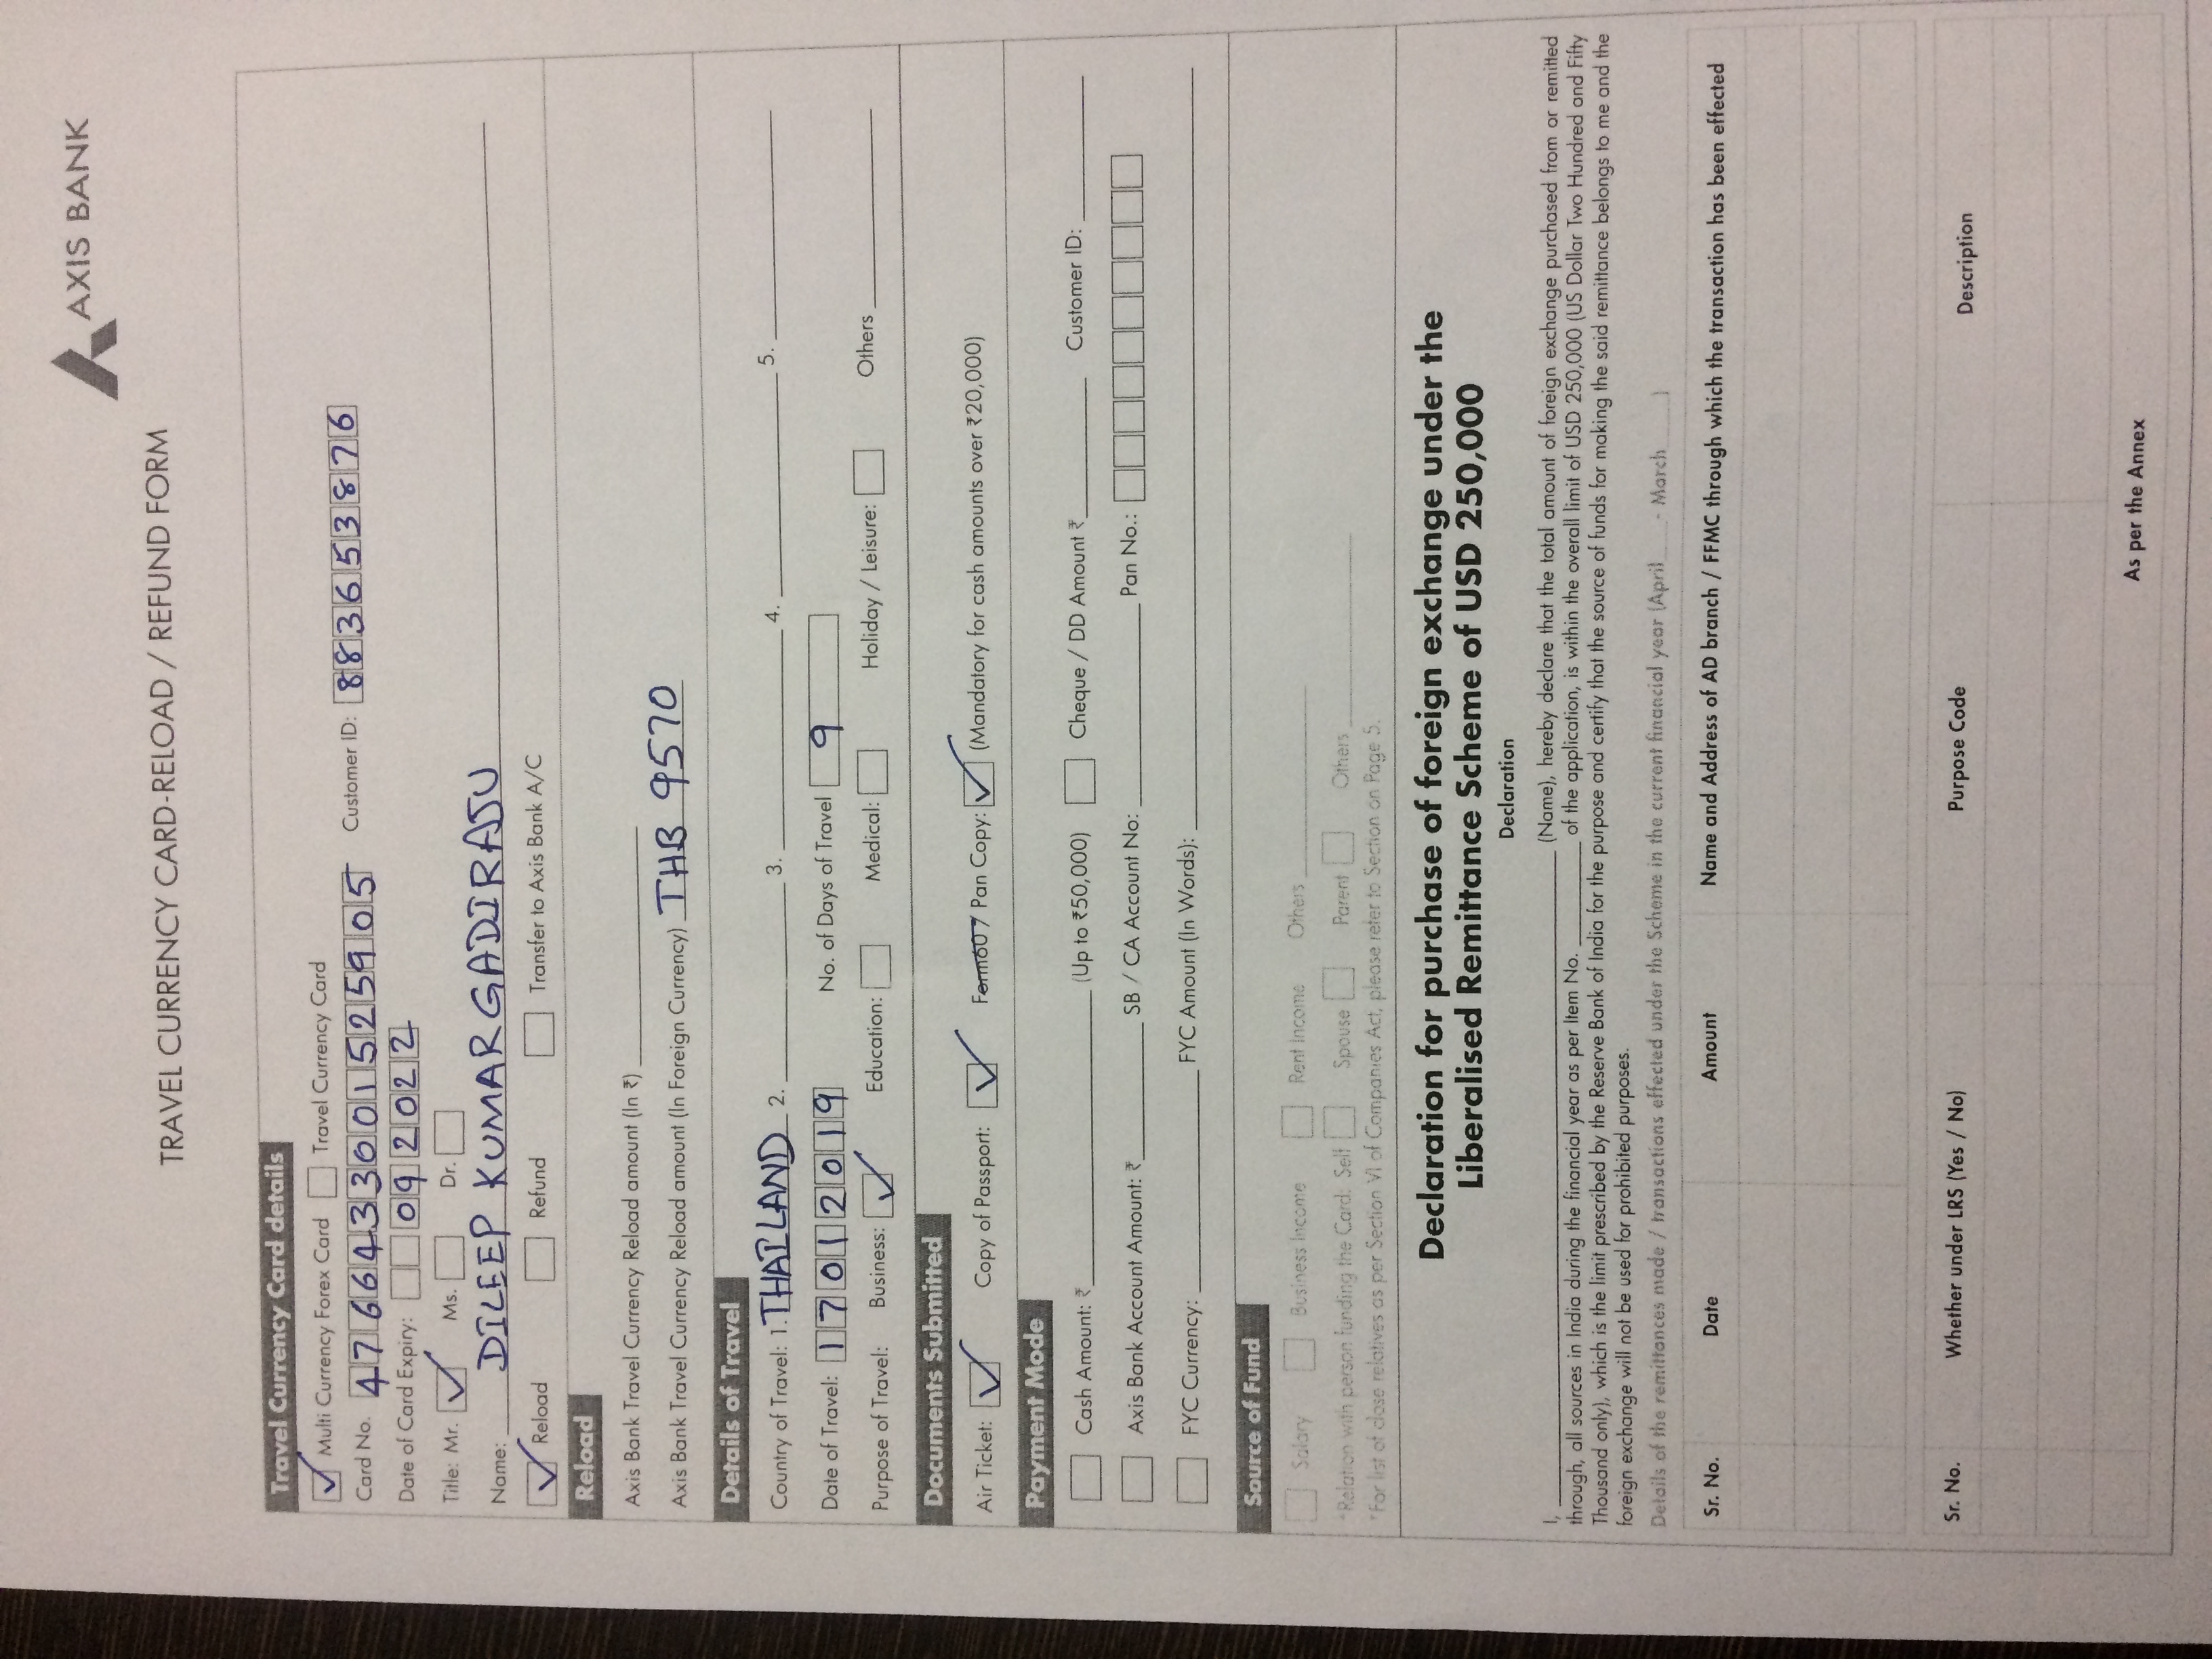 AXIS BANK
TRAVEL CURRENCY CARD-RELOAD / REFUND FORM
Travel Currency Card details
Multi Currency Forex Card Travel Currency Card
Card No. 4766433001525905 Customer ID: 883653876
Date of Card Expiry: 092022
Title: Mr. Ms. Dr.
Name: DILEEP KUMAR GADIRAJU
Reload Refund Transfer to Axis Bank A/C
Reload
Axis Bank Travel Currency Reload amount (In ₹)
Axis Bank Travel Currency Reload amount (In Foreign Currency) THB 9570
Details of Travel
Country of Travel: 1. THAILAND 2. 3. 4. 5.
Date of Travel: 17012019 No. of Days of Travel 9
Purpose of Travel: Business: Education: Medical: Holiday / Leisure: Others
Documents Submitted
Air Ticket: Copy of Passport: Form60 / Pan Copy: (Mandatory for cash amounts over ₹20,000)
Payment Mode
Cash Amount: ₹ (Up to ₹50,000) Cheque / DD Amount ₹ Customer ID:
Axis Bank Account Amount: ₹ SB / CA Account No: Pan No.:
FYC Currency: FYC Amount (In Words):
Source of Fund
Salary Business Income Rent Income Others
*Relation with person funding the Card: Self Spouse Parent Others
*For list of close relatives as per Section VI of Companies Act, please refer to Section on Page 5.
Declaration for purchase of foreign exchange under the
Liberalised Remittance Scheme of USD 250,000
Declaration
I, (Name), hereby declare that the total amount of foreign exchange purchased from or remitted
through, all sources in India during the financial year as per Item No. of the application, is within the overall limit of USD 250,000 (US Dollar Two Hundred and Fifty
Thousand only), which is the limit prescribed by the Reserve Bank of India for the purpose and certify that the source of funds for making the said remittance belongs to me and the
foreign exchange will not be used for prohibited purposes.
Details of the remittances made / transactions effected under the Scheme in the current financial year (April - March )
Sr. No. Date Amount Name and Address of AD branch / FFMC through which the transaction has been effected
Sr. No. Whether under LRS (Yes / No) Purpose Code Description
As per the Annex